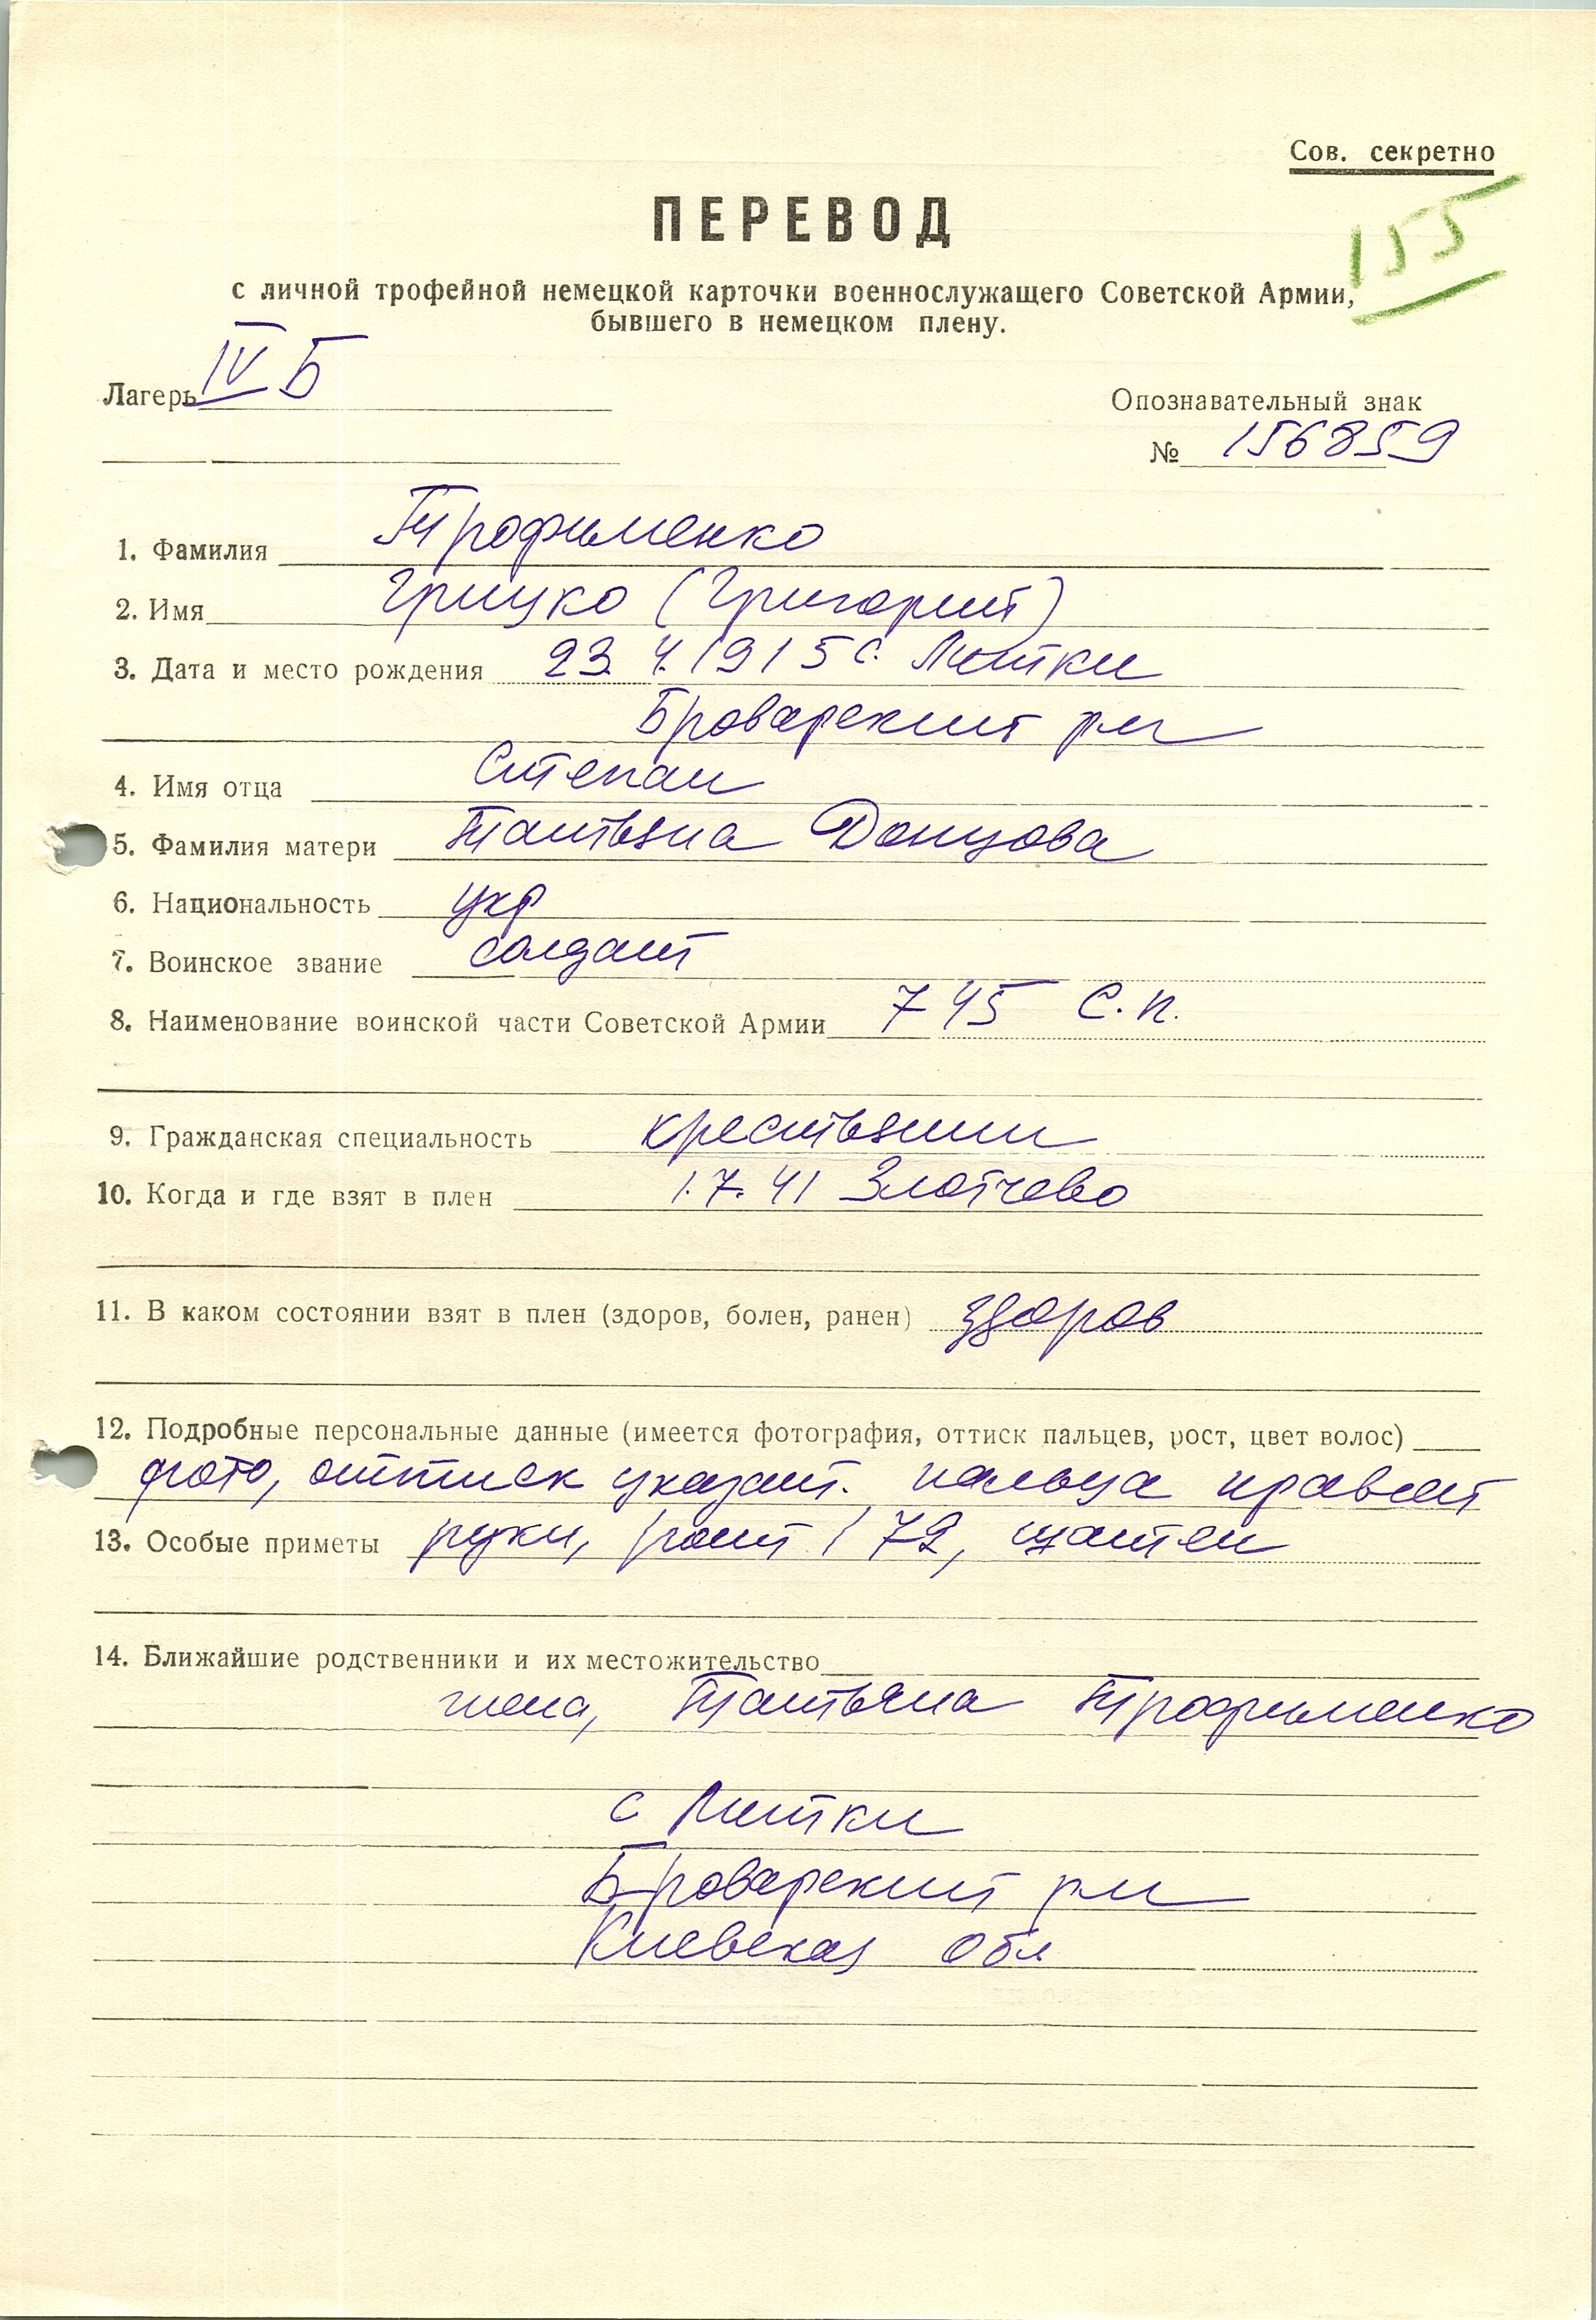 Сов. секретно
155
ПЕРЕВОД
с личной трофейной немецкой карточки военнослужащего Советской Армии,
бывшего в немецком плену.
Лагерь IV Б
Опознавательный знак
№ 156859
1. Фамилия Трофименко
2. Имя Грицко (Григорий)
3. Дата и место рождения 23.4.1915 с. Литки
Броварский рн
4. Имя отца Степан
5. Фамилия матери Татьяна Донцова
6. Национальность укр
7. Воинское звание солдат
8. Наименование воинской части Советской Армии 745 с.п.
9. Гражданская специальность крестьянин
10. Когда и где взят в плен 1.7.41 Злотчево
11. В каком состоянии взят в плен (здоров, болен, ранен) здоров
12. Подробные персональные данные (имеется фотография, оттиск пальцев, рост, цвет волос)
фото, оттиск указат. пальца правой
13. Особые приметы руки, рост 172, шатен
14. Ближайшие родственники и их местожительство
жена, Татьяна Трофименко
с Литки
Броварский рн
Киевская обл